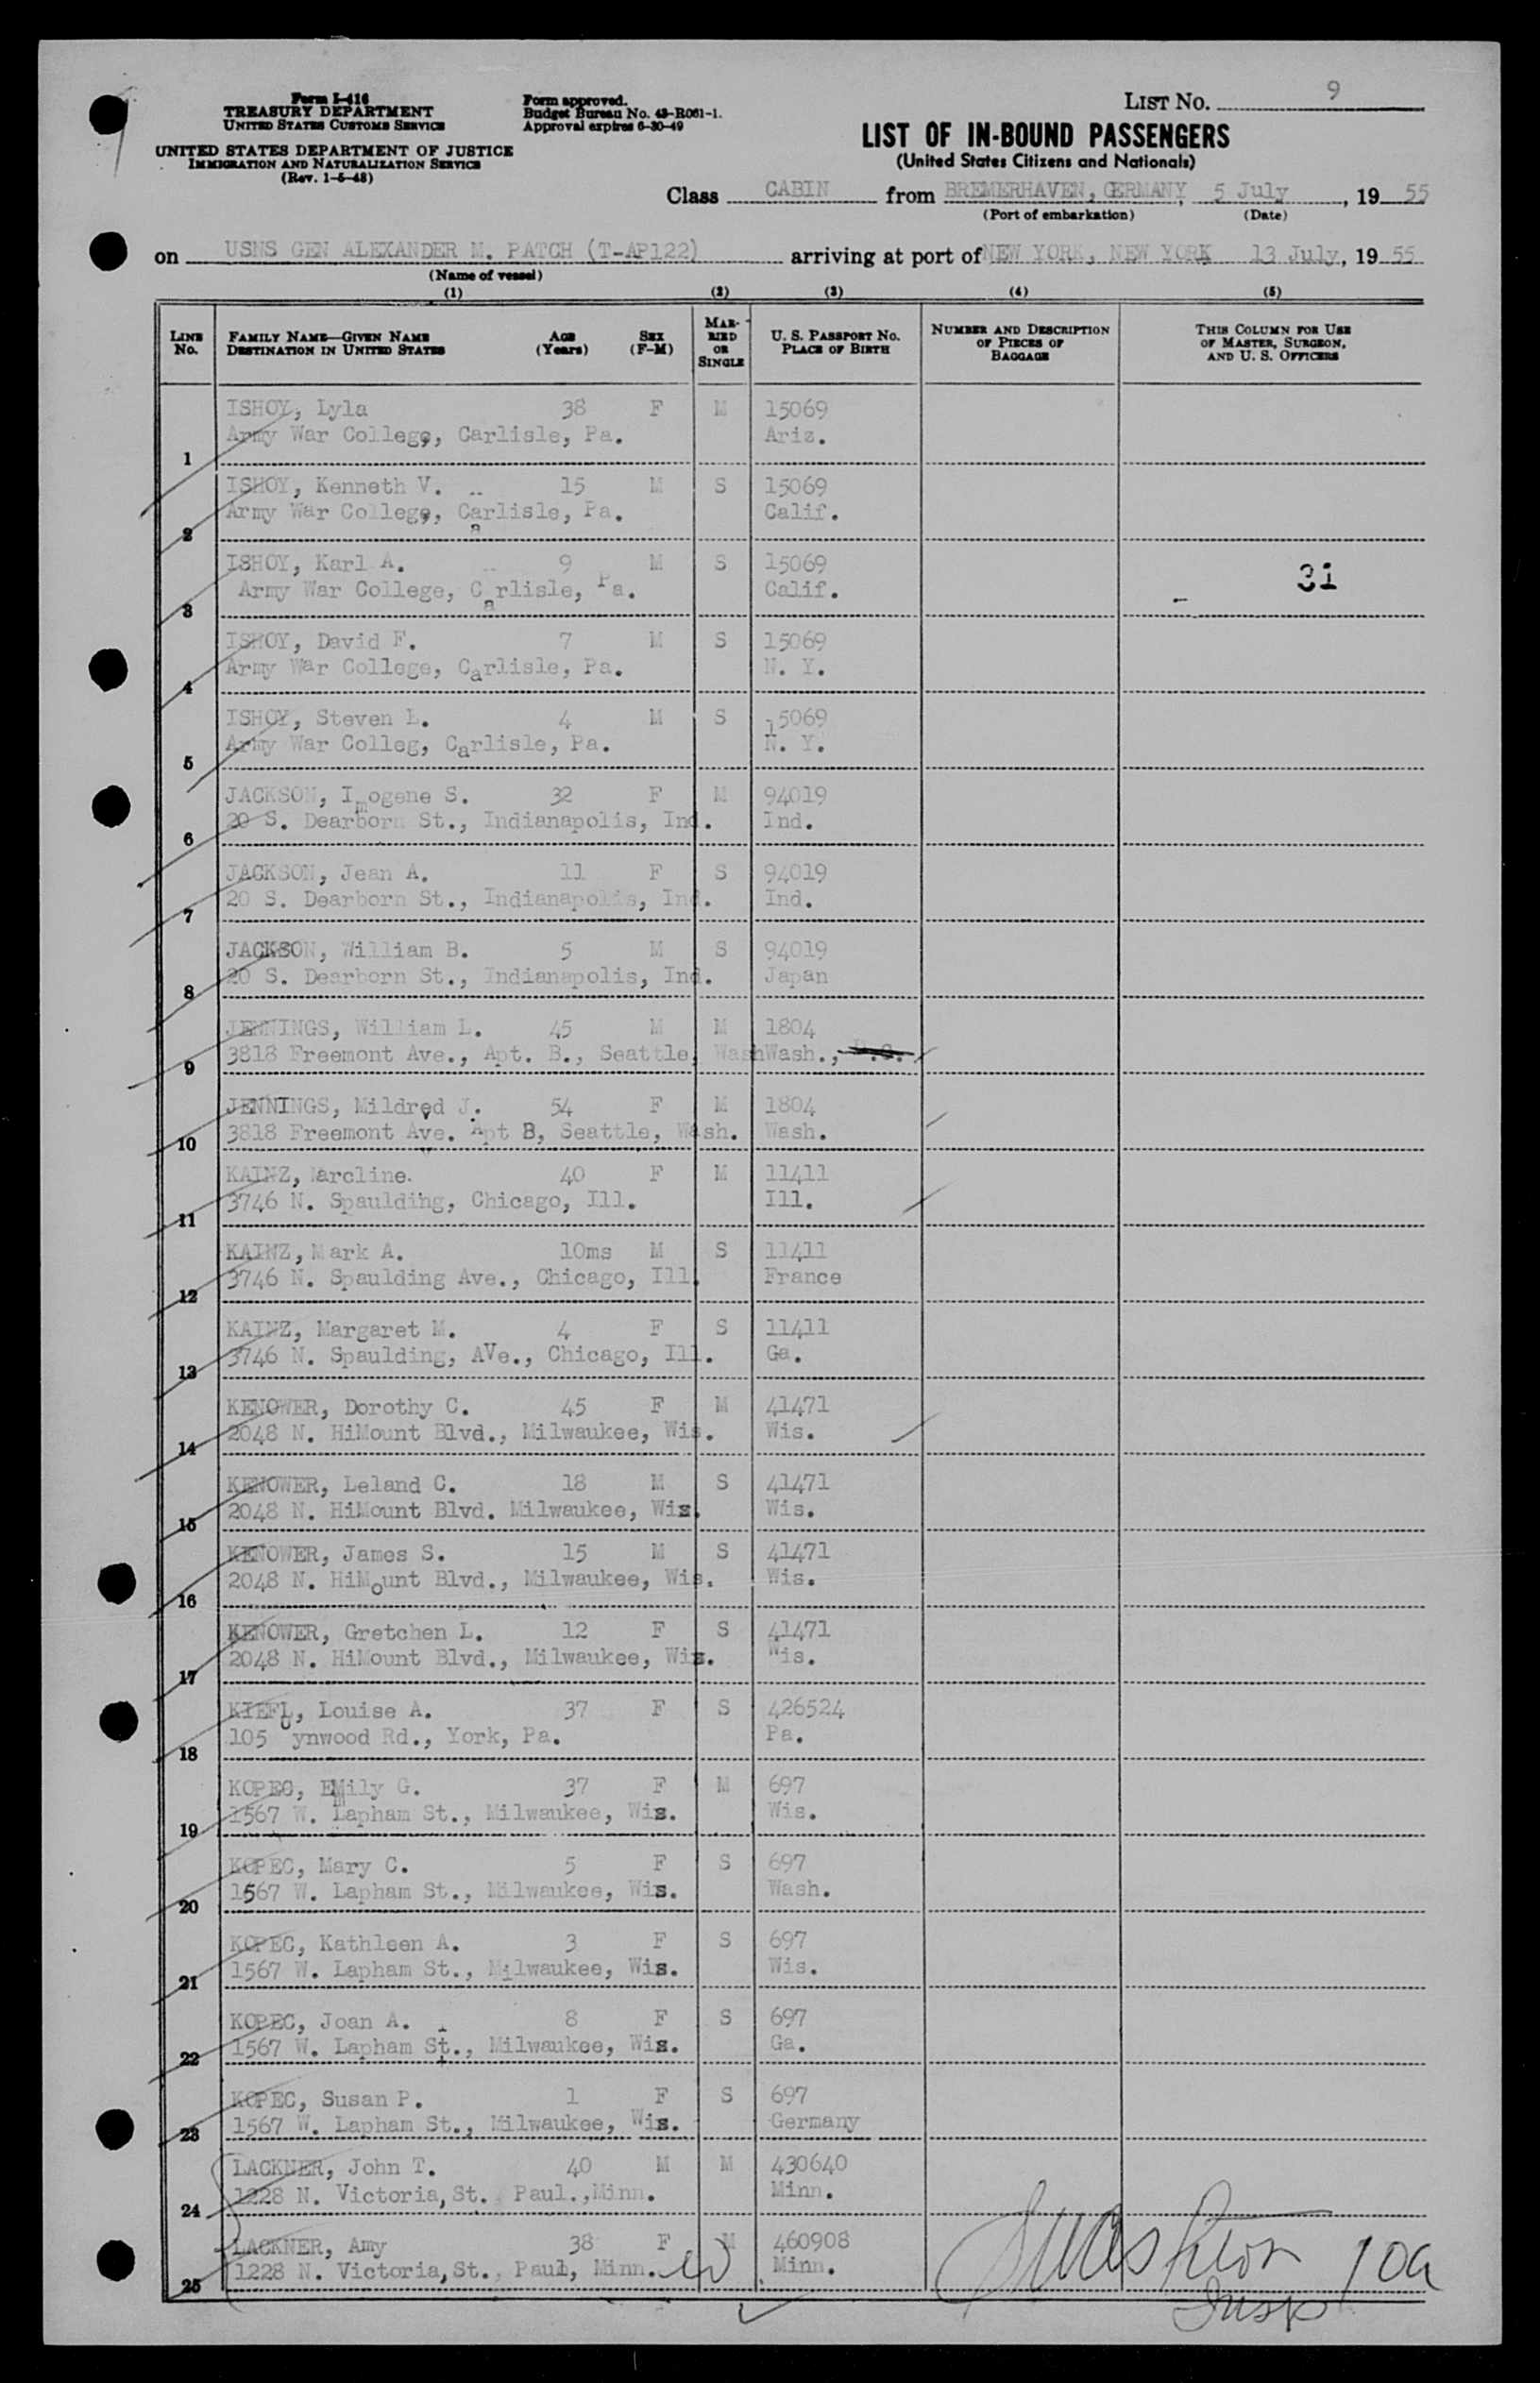 Form I-416
TREASURY DEPARTMENT
UNITED STATES CUSTOMS SERVICE
UNITED STATES DEPARTMENT OF JUSTICE
IMMIGRATION AND NATURALIZATION SERVICE
(Rev. 1-5-48)
Form approved.
Budget Bureau No. 43-R061-1.
Approval expires 6-30-49
LIST No. 9
LIST OF IN-BOUND PASSENGERS
(United States Citizens and Nationals)
Class CABIN from BREMERHAVEN, GERMANY, 5 July, 19 55
(Port of embarkation) (Date)
on USNS GEN ALEXANDER M. PATCH (T-AP122) arriving at port of NEW YORK, NEW YORK 13 July, 19 55
(Name of vessel)
(1) (2) (3) (4) (5)
LINE No. FAMILY NAME—GIVEN NAME DESTINATION IN UNITED STATES AGE (Years) SEX (F-M) MARRIED OR SINGLE U. S. PASSPORT No. PLACE OF BIRTH NUMBER AND DESCRIPTION OF PIECES OF BAGGAGE THIS COLUMN FOR USE OF MASTER, SURGEON, AND U. S. OFFICERS
ISHOY, Lyla 38 F M 15069
1 Army War College, Carlisle, Pa. Ariz.
ISHOY, Kenneth V. 15 M S 15069
2 Army War College, Carlisle, Pa. Calif.
ISHOY, Karl A. 9 M S 15069 31
3 Army War College, Carlisle, Pa. Calif.
ISHOY, David F. 7 M S 15069
4 Army War College, Carlisle, Pa. N. Y.
ISHOY, Steven L. 4 M S 15069
5 Army War Colleg, Carlisle, Pa. N. Y.
JACKSON, Imogene S. 32 F M 94019
6 20 S. Dearborn St., Indianapolis, Ind. Ind.
JACKSON, Jean A. 11 F S 94019
7 20 S. Dearborn St., Indianapolis, Ind. Ind.
JACKSON, William B. 5 M S 94019
8 20 S. Dearborn St., Indianapolis, Ind. Japan
JENNINGS, William L. 45 M M 1804
9 3818 Freemont Ave., Apt. B., Seattle, Wash Wash.,
JENNINGS, Mildred J. 54 F M 1804
10 3818 Freemont Ave. Apt B, Seattle, Wash. Wash.
KAINZ, Marcline. 40 F M 11411
11 3746 N. Spaulding, Chicago, Ill. Ill.
KAINZ, Mark A. 10ms M S 11411
12 3746 N. Spaulding Ave., Chicago, Ill. France
KAINZ, Margaret M. 4 F S 11411
13 3746 N. Spaulding, AVe., Chicago, Ill. Ga.
KENOWER, Dorothy C. 45 F M 41471
14 2048 N. HiMount Blvd., Milwaukee, Wis. Wis.
KENOWER, Leland C. 18 M S 41471
15 2048 N. HiMount Blvd. Milwaukee, Wis. Wis.
KENOWER, James S. 15 M S 41471
16 2048 N. HiMount Blvd., Milwaukee, Wis. Wis.
KENOWER, Gretchen L. 12 F S 41471
17 2048 N. HiMount Blvd., Milwaukee, Wis. Wis.
KIEFL, Louise A. 37 F S 426524
18 105 ynwood Rd., York, Pa. Pa.
KOPEC, EMily G. 37 F M 697
19 1567 W. Lapham St., Milwaukee, Wis. Wis.
KOPEC, Mary C. 5 F S 697
20 1567 W. Lapham St., Milwaukee, Wis. Wash.
KOPEC, Kathleen A. 3 F S 697
21 1567 W. Lapham St., Milwaukee, Wis. Wis.
KOPEC, Joan A. 8 F S 697
22 1567 W. Lapham St., Milwaukee, Wis. Ga.
KOPEC, Susan P. 1 F S 697
23 1567 W. Lapham St., Milwaukee, Wis. Germany
LACKNER, John T. 40 M M 430640
24 1228 N. Victoria, St. Paul., Minn. Minn.
LACKNER, Amy 38 F M 460908
25 1228 N. Victoria, St. Paul, Minn. Minn.
Insp